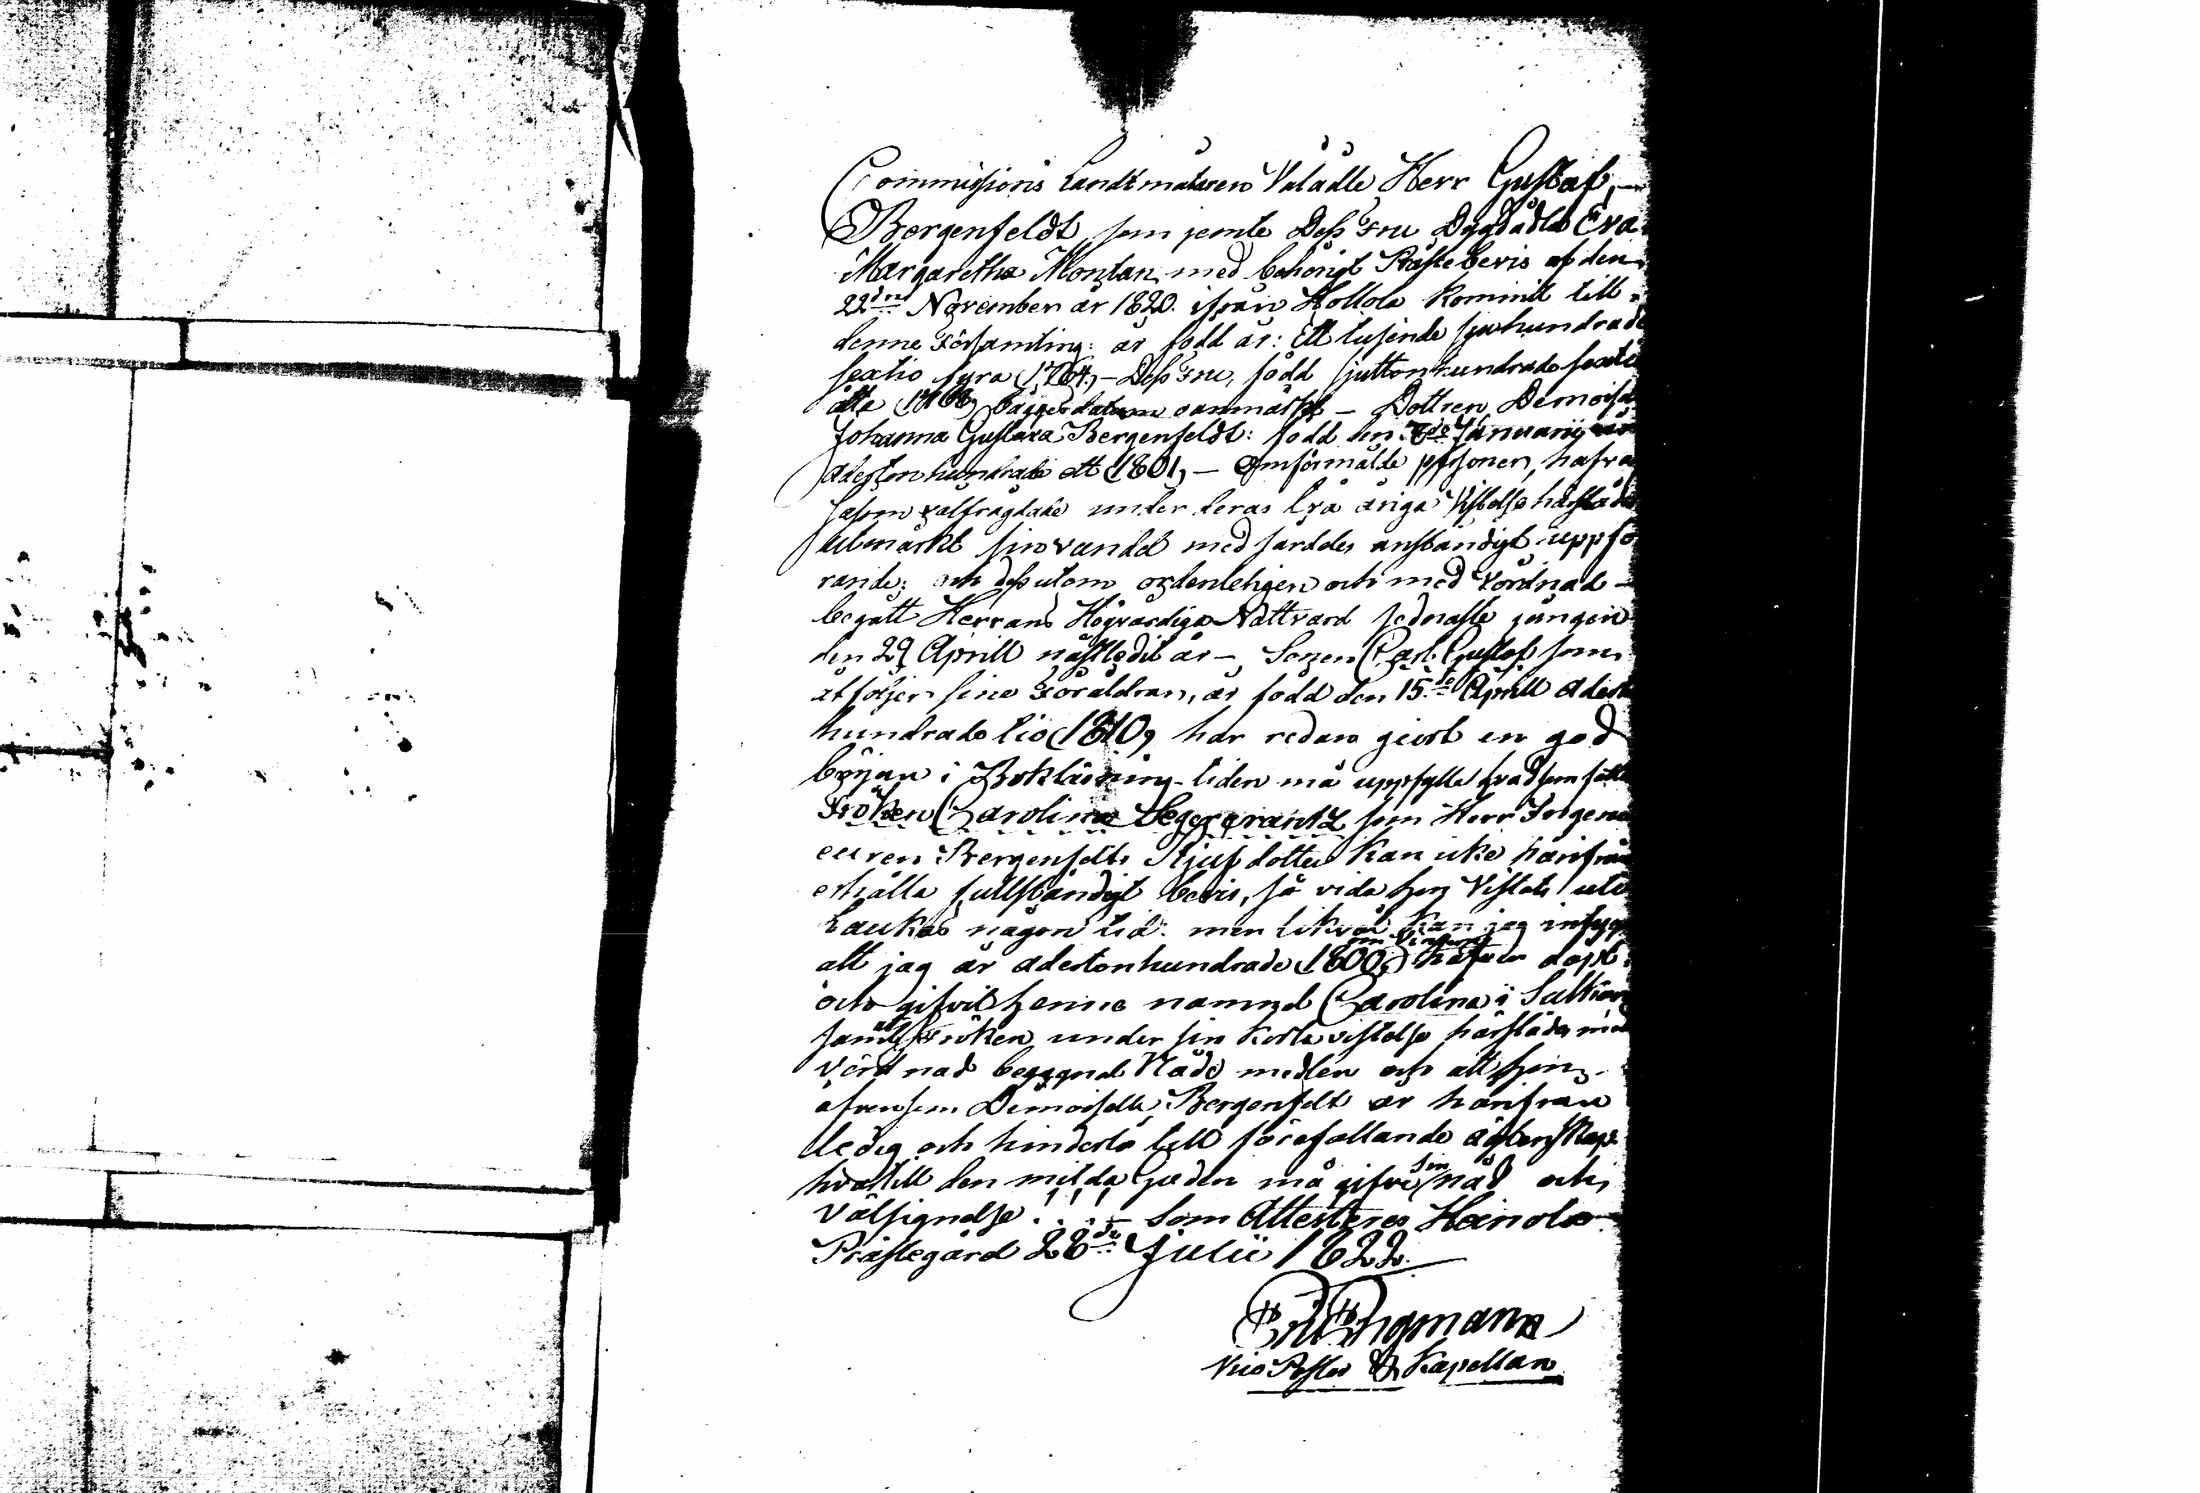 Commissions Landtmätaren Välädle Herr Gustaf
Bergenfeldt som jemte Dess Fru Dygdädla Eva
Margaretha Montan med behörigt Prästebevis af den
22dra November år 1820. ifrån Hollola kommit till
denne Församling: är född år: Ett tusende sjuhundrade
sextio fyra (1764,) - Dess Fru, född sjuttonhundrade sextio
åtta (1768) bägges datum oanmärkt - Dottren Demoisel
Johanna Gustava Bergenfeldt: född den Januarij
adertonhundrade ett (1801) - Omförmälde personer, hafva
såsom välfrägdade under deras två åriga vistelse härstädes
utmärkt sin vandel med särdeles anständigt uppfö
rande; och dessutom ordenteligen och med vördnad -
begått Herrans Högvärdiga Nattvard sednaste gången
den 29 Aprill nästledit år - Sonen Carl Gustaf som
åtföljer sine Föräldrar, är född den 15de Aprill aderton
hundrade tio (1810) har redan giort en god
början i Bokläsning - tiden må uppfylla hvad som fattas
Fröken Carolina Segercrantz som Herr Ingeni
euren Bergenfelts Stjuf dotter kan icke härifrån
erhålla fullständigt bevis, så vida hon vistats uti
Laukas någon tid: men likväl kan jag intyga
att jag år adertonhundrade (1800) om Vintern hafver döpt
och gifvit henne namnet Carolina i Sulkava
samt at Fröken under sin korta vistelse härstädes med
vördnad begagnat Nåde medlen och att hon
äfvensom Demoiselle Bergenfelt är härifrån
ledig och hinderlös till förefallande ägtenskap
hvartill den milda Guden må gifva sin nåd och
välsignelse!!! - Som Attesteras Heinola
Prästegård 28de Julii 1822.
Bergmann
Vice Pastor & Kapellan